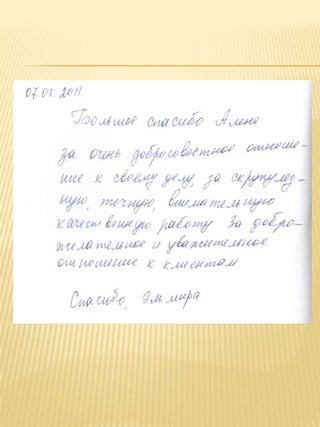 07.03.2011
Большое спасибо Алене
за очень добросовестное отноше-
ние к своему делу, за скрупулез-
ную, точную, внимательную
качественную работу За добро-
желательное и уважительное
отношение к клиентам
Спасибо, Эльмира